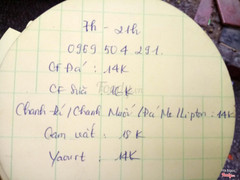 7h - 21h
0969 504 291.
Cf Đá : 14K
Cf Sữa 16K
Chanh đá/Chanh Muối/Đá Me/Lipton : 14K
Cam vắt : 18K
Yaourt : 14K